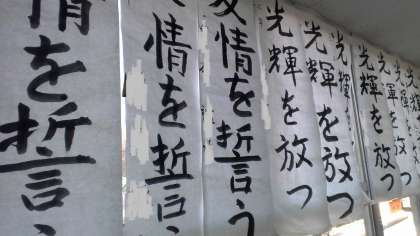 情を誓
情を誓
友情を誓う
光輝を放つ
光輝を放つ
光輝を放
光輝を放つ
光輝を放つ